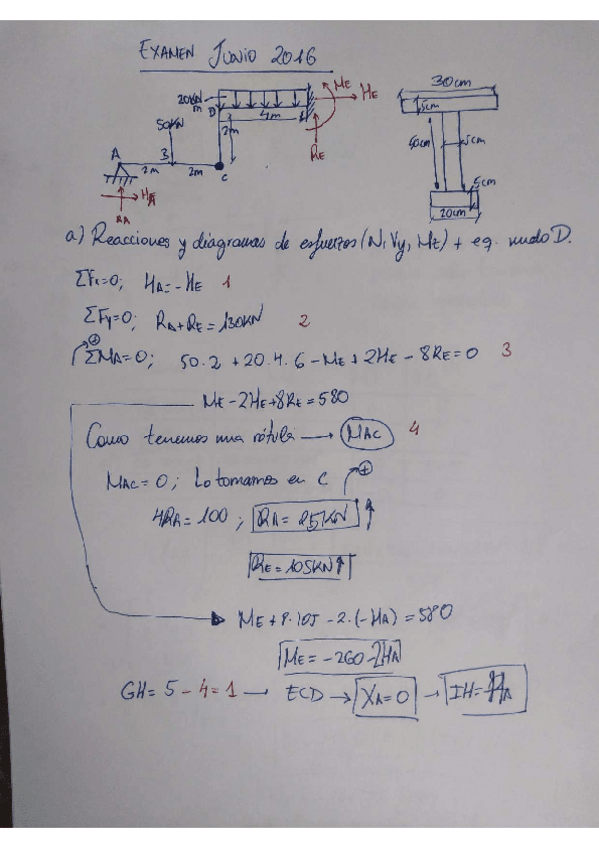 EXAMEN JUNIO 2016
30cm
20KN/m
ME
HE
5cm
D
4m
50KN
2m
40cm
5cm
A
B
RE
2m
2m
C
5cm
HA
20cm
RA
a) Reacciones y diagramas de esfuerzos (N, Vy, Mz) + eq. nudo D.
ΣFx=0; HA=-HE 1
ΣFy=0; RA+RE=130KN 2
ΣMA=0; 50·2+20·4·6-ME+2HE-8RE=0 3
ME-2HE+8RE=580
Como tenemos una rótula → MAC 4
MAC=0; Lo tomamos en C
4RA=100; RA=25KN ↑
RE=105KN ↑
ME+8·105-2·(-HA)=580
ME=-260-2HA
GH=5-4=1 → ECD → XA=0 → IH=HA